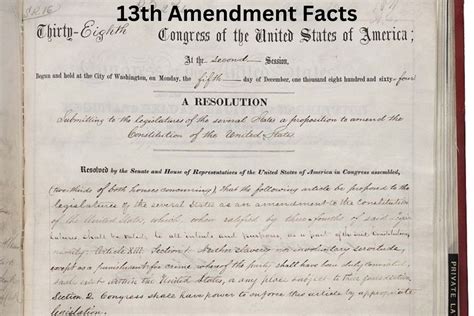 13th Amendment Facts
Thirty-Eighth Congress of the United States of America;
At the second Session,
Begun and held at the City of Washington, on Monday, the fifth day of December, one thousand eight hundred and sixty-four
A RESOLUTION
Submitting to the legislatures of the several States a proposition to amend the
Constitution of the United States
Resolved by the Senate and House of Representatives of the United States of America in Congress assembled,
(two-thirds of both houses concurring), That the following article be proposed to the
legislatures of the several States as an amendment to the Constitution
of the United States, which, when ratified by three-fourths of said legis-
latures shall be valid, to all intents and purposes, as a part of the said Constitution
namely: Article XIII. Section 1. Neither slavery nor involuntary servitude,
except as a punishment for crime whereof the party shall have been duly convicted,
shall exist within the United States, or any place subject to their jurisdiction.
Section 2. Congress shall have power to enforce this article by appropriate
legislation.
PRIVATE LA